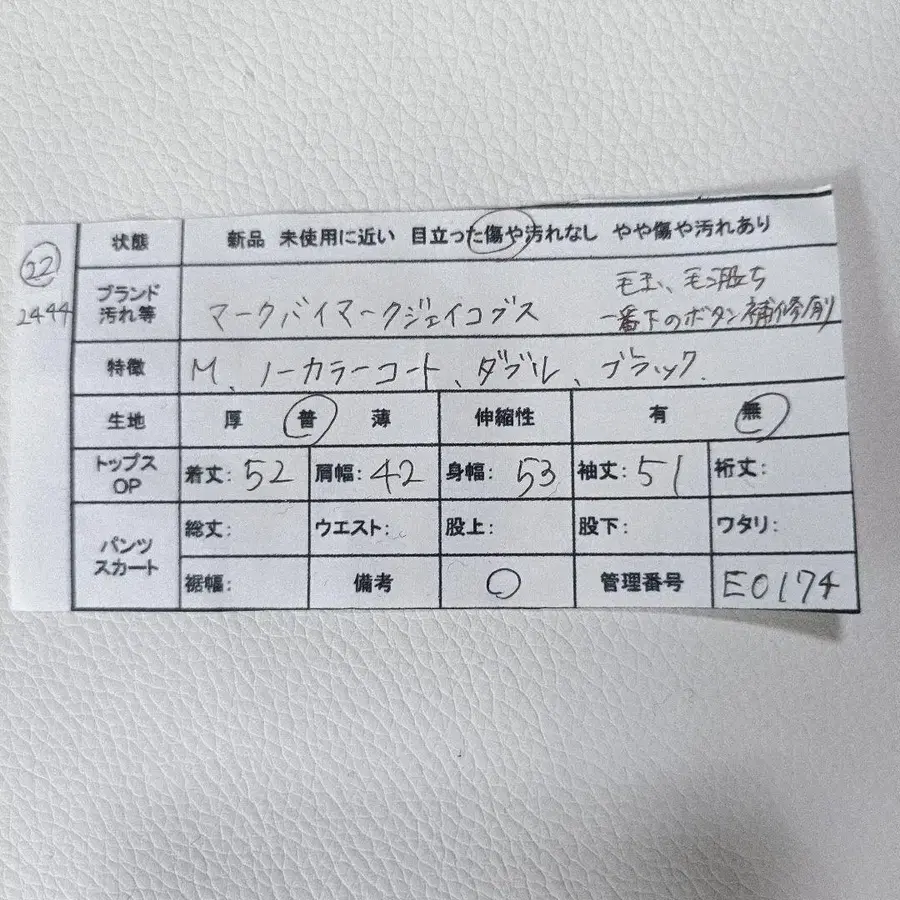 22
2444
状態 新品 未使用に近い 目立った傷や汚れなし やや傷や汚れあり
ブランド
汚れ等
マークバイマークジェイコブス
毛玉、毛羽立ち
一番下のボタン補修
特徴 M、ノーカラーコート、ダブル、ブラック.
生地 厚 普 薄 伸縮性 有 無
トップス
OP
着丈: 52 肩幅: 42 身幅: 53 袖丈: 51 裄丈:
パンツ
スカート
総丈: ウエスト: 股上: 股下: ワタリ:
裾幅: 備考 ○ 管理番号 E0174